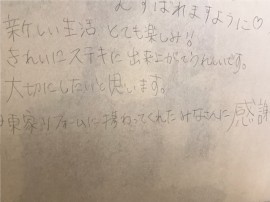 むすばれますように♡
新しい生活 とても楽しみ!!
きれいにステキに出来上がりうれしいです。
大切にしたいと思います。
東家リフォームに携わってくれたみなさんに感謝